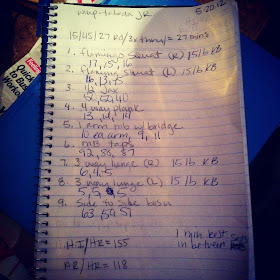 5.20.12
15/45/27 RD/3x thru/= 27 mins
1. flamingo squat (R) 15 lb KB
17, 15, 16
2. flamingo squat (L) 15 lb KB
16, 13, 15
3. Jax
52, 52, 40
4. 4 way plank
13, 14, 14
5. 1 arm mb w/ bridge
10 ea arm, 9, 11
6. MB taps
7. 3 way lunge (R) 15 lb KB
6, 4, 5
8. 3 way lunge (L) 15 lb KB
5, 5, 5
9. Side to Side bosu
63, 59, 57
1 min rest
in between
H.I/HR = 155
AR/HR = 118